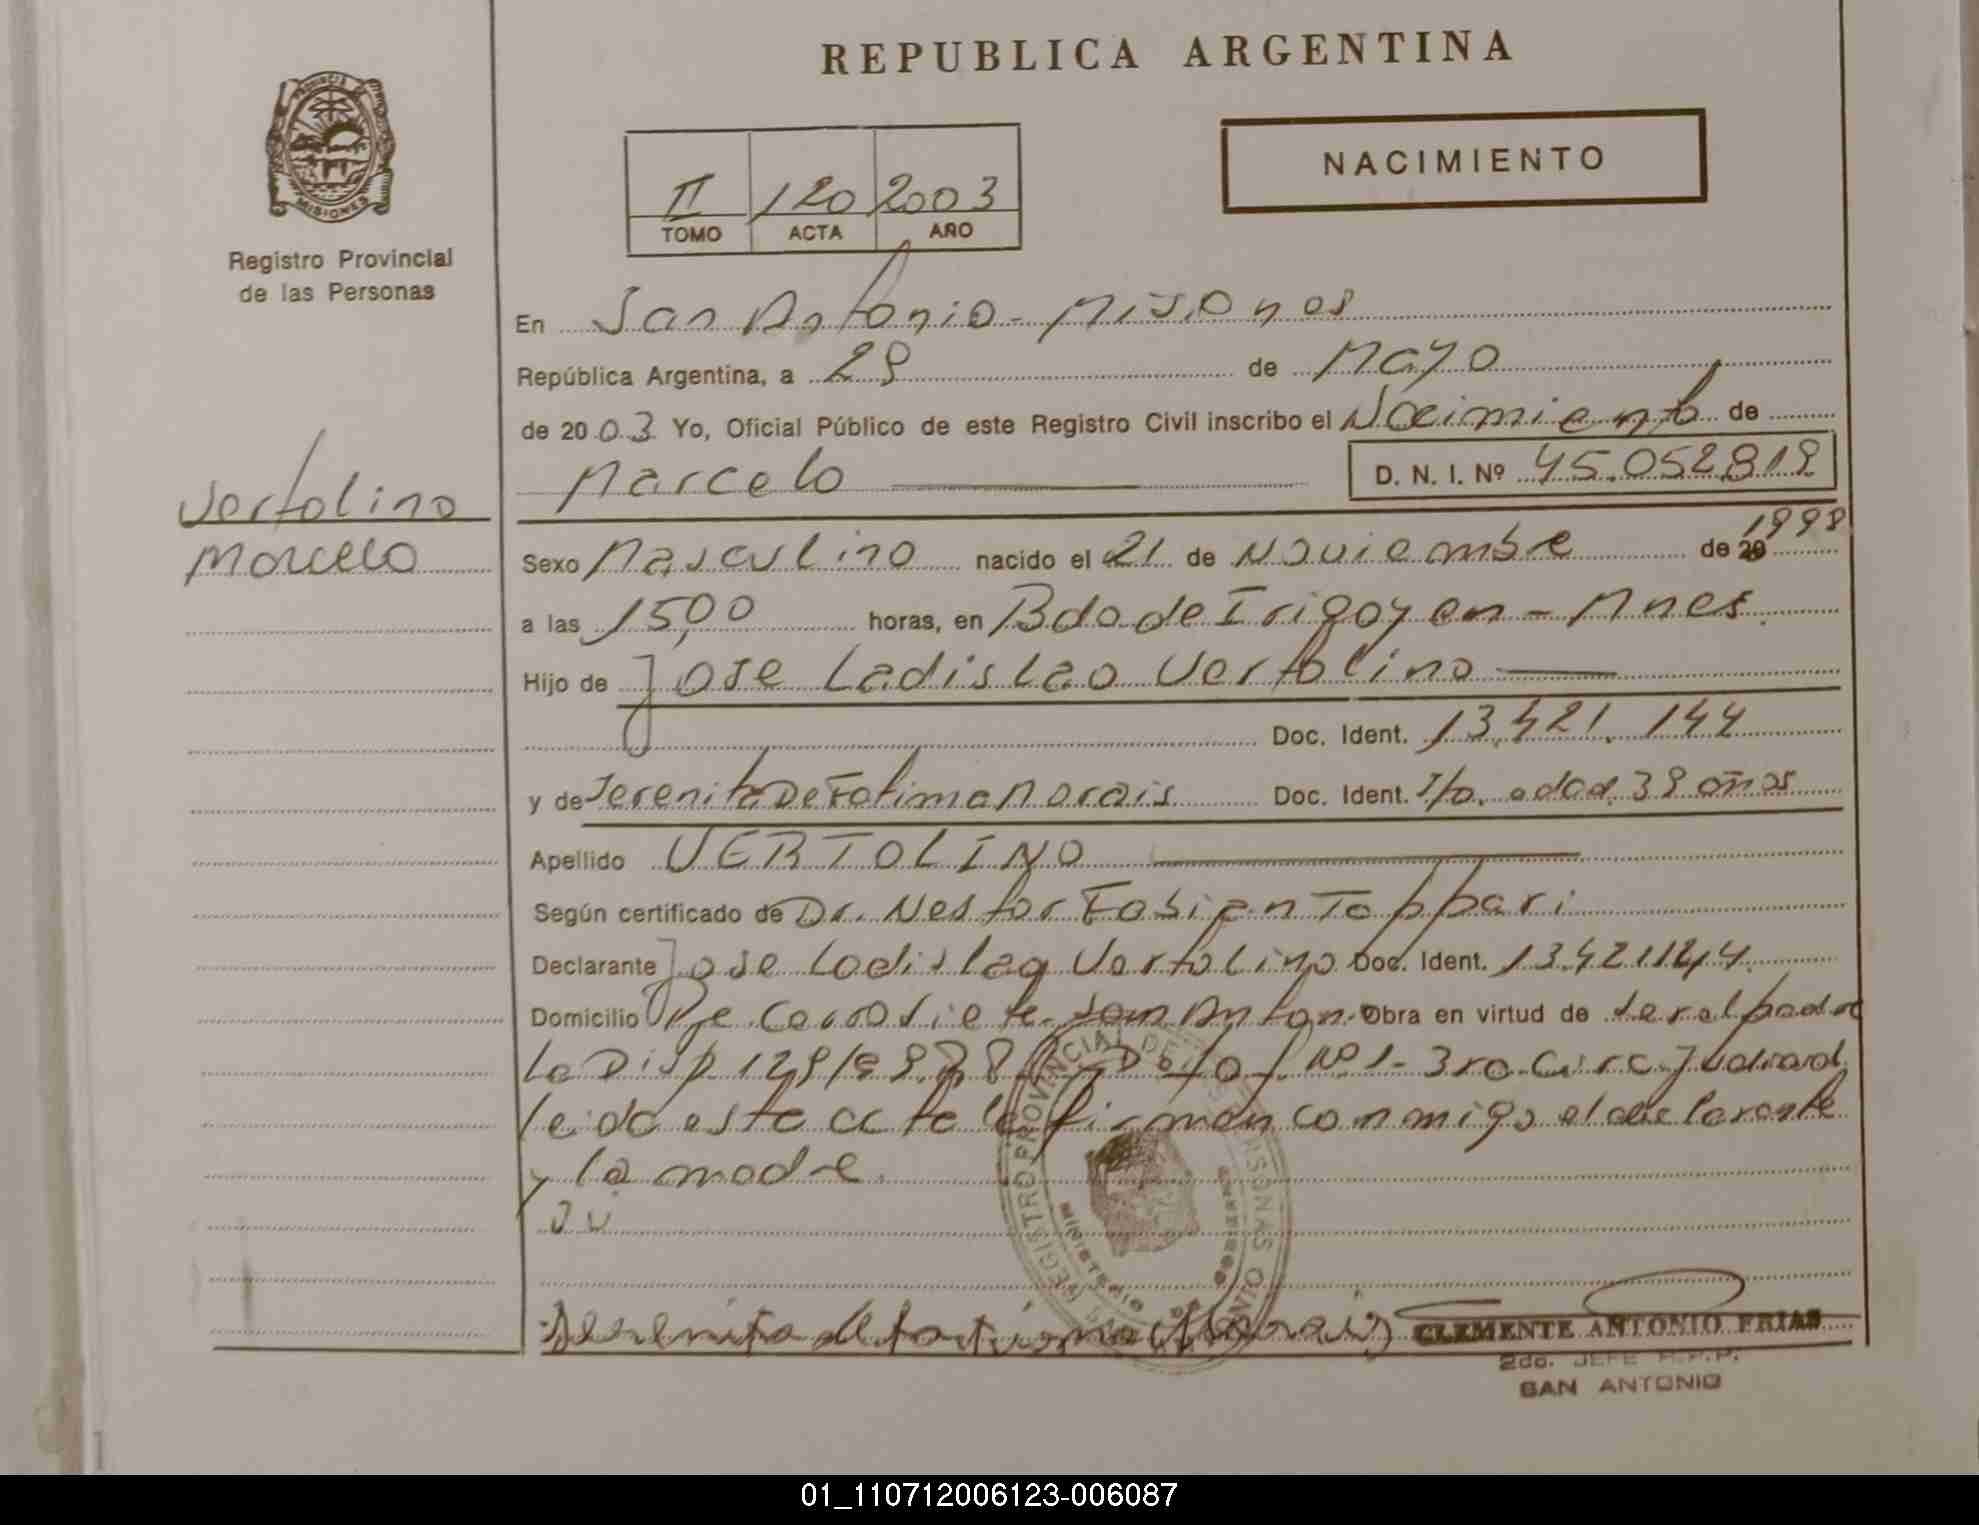 REPUBLICA ARGENTINA
PROVINCIA DE
MISIONES
Registro Provincial
de las Personas
NACIMIENTO
II 120 2003
TOMO ACTA AÑO
En San Antonio - Misiones
República Argentina, a 29 de Mayo
de 2003 Yo, Oficial Público de este Registro Civil inscribo el Nacimiento de
Marcelo D. N. I. Nº 45.052.819
Vertolino
Marcelo
Sexo Masculino nacido el 21 de Noviembre de 20 1998
a las 15,00 horas, en Bdo de Irigoyen - Mnes.
Hijo de Jose Ladislao Vertolino
Doc. Ident. 13.421.144
y de Terenita De Fatima Morais Doc. Ident. edad 39 años
Apellido VERTOLINO
Según certificado de Dr. Nestor Fabian Tappari
Declarante Jose Ladislao Vertolino Doc. Ident. 13.421144
Domicilio Pje San Anton. Obra en virtud de ser el padre
La Disp. Nº 1 - 3ra Circ. Judicial
leida este acta la firman conmigo el declarante
y la madre.
REGISTRO PROVINCIAL DE LAS PERSONAS
MINISTERIO DE
CLEMENTE ANTONIO FRIAS
2do. JEFE R.P.P.
SAN ANTONIO
01_110712006123-006087